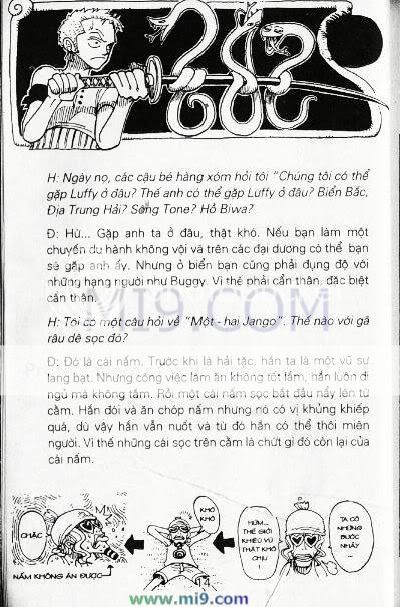 H: Ngày nọ, các cậu bé hàng xóm hỏi tôi "Chúng tôi có thể
gặp Luffy ở đâu? Thế anh có thể gặp Luffy ở đâu? Biển Bắc,
Địa Trung Hải? Sông Tone? Hồ Biwa?
Đ: Hừ... Gặp anh ta ở đâu, thật khó. Nếu bạn làm một
chuyến du hành không vội vã trên các đại dương có thể bạn
sẽ gặp anh ấy. Nhưng ở biển bạn cũng phải đụng độ với
những hạng người như Buggy. Vì thế phải cẩn thận, đặc biệt
cẩn thận.
MI9.COM
H: Tôi có một câu hỏi về "Một - hai Jango". Thế nào với gã
râu dê sọc đó?
Đ: Đó là cái nấm. Trước khi là hải tặc, hắn ta là một vũ sư
lang bạt. Nhưng công việc làm ăn không tốt lắm, hắn luôn đi
ngủ mà không tắm. Rồi một cái nấm sọc bắt đầu nẩy lên từ
cằm. Hắn đói và ăn chóp nấm nhưng nó có vị khủng khiếp
quá, dù vậy hắn vẫn nuốt và từ đó hắn có thể thôi miên
người. Vì thế những cái sọc trên cằm là chứt gì đó còn lại của
cái nấm.
TA CÓ
NHỮNG
BƯỚC
NHẢY
...
HỪM...
THẾ GIỚI
KHIÊU VŨ
THẬT KHÓ
CHỊU
KHÒ
KHÒ
CHẮC
NẤM KHÔNG ĂN ĐƯỢC
www.mi9.com